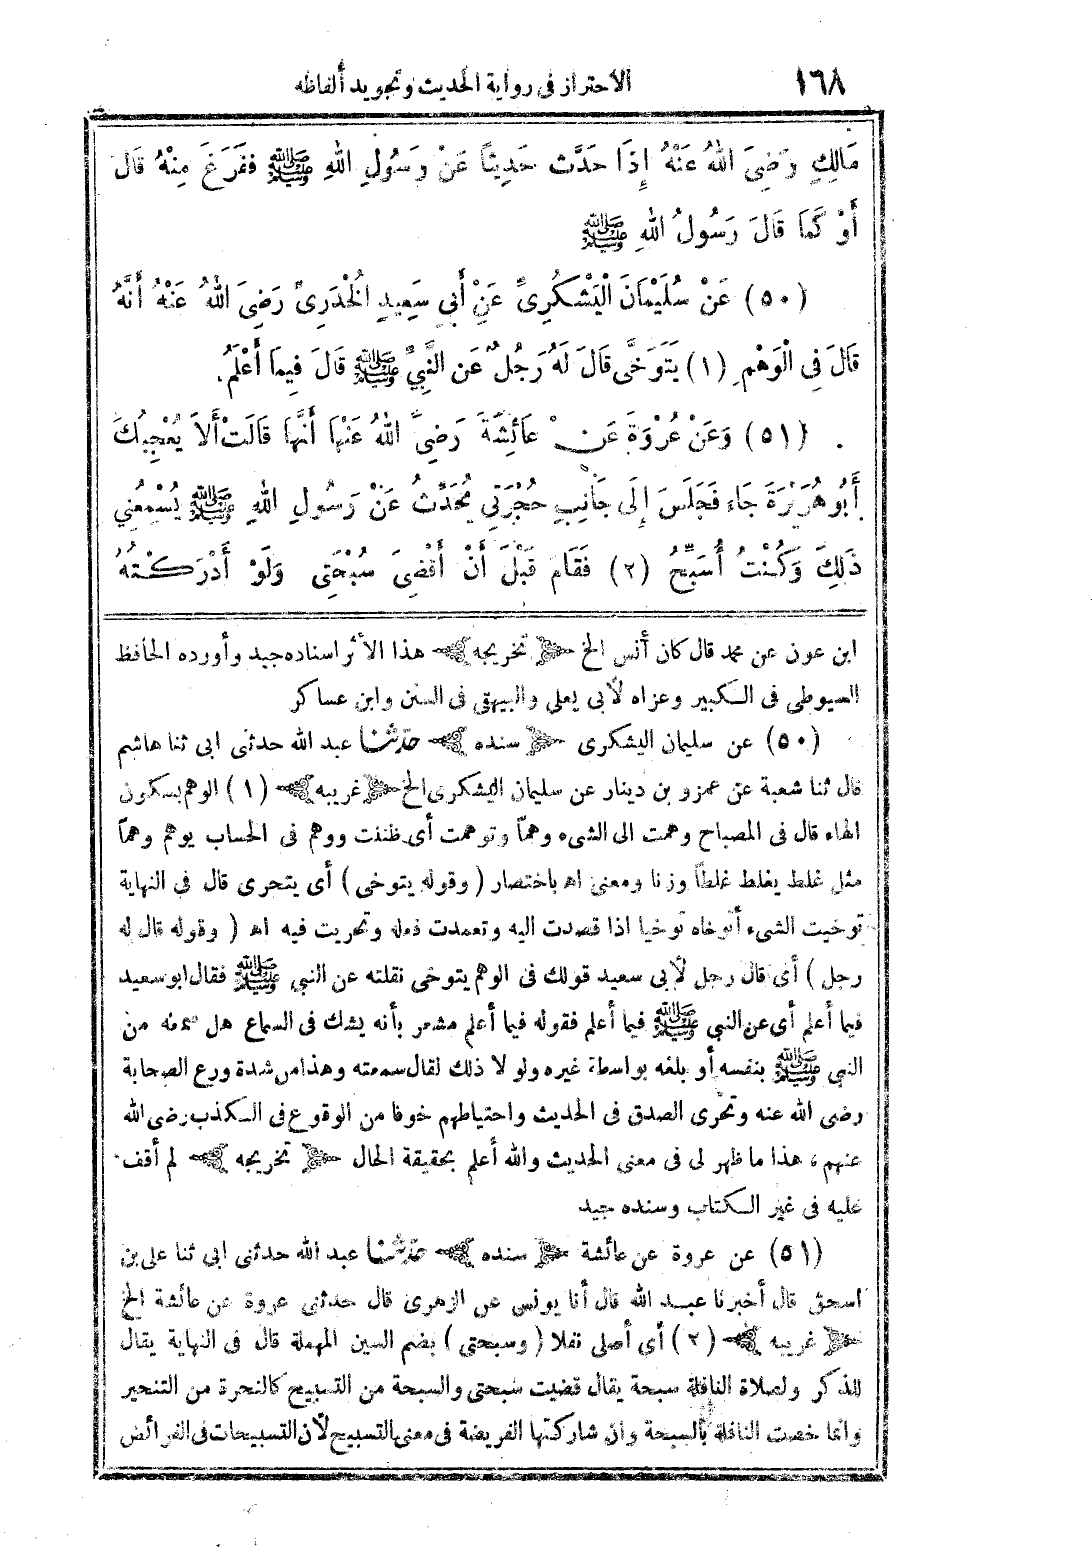 ١٦٨ الاحتراز فى رواية الحديث وتجويد ألفاظه
مَالِكٍ رَضِىَ اللهُ عَنْهُ إِذَا حَدَّثَ حَدِيثًا عَنْ رَسُولِ اللهِ ﷺ فَفَرَغَ مِنْهُ قَالَ
أَوْ كَمَا قَالَ رَسُولُ اللهِ ﷺ
(٥٠) عَنْ سُلَيْمَانَ الْيَشْكُرِىِّ عَنْ أَبِي سَعِيدٍ الْخُدْرِىِّ رَضِىَ اللهُ عَنْهُ أَنَّهُ
قَالَ فِى الْوَهْمِ (١) يَتَوَخَّى قَالَ لَهُ رَجُلٌ عَنِ النَّبِيِّ ﷺ قَالَ فِيمَا أَعْلَمُ.
(٥١) وَعَنْ عُرْوَةَ عَنْ عَائِشَةَ رَضِىَ اللهُ عَنْهَا أَنَّهَا قَالَتْ أَلاَ يُعْجِبُكَ
أَبُو هُرَيْرَةَ جَاءَ فَجَلَسَ إِلَى جَانِبِ حُجْرَتِي يُحَدِّثُ عَنْ رَسُولِ اللهِ ﷺ يُسْمِعُنِي
ذَلِكَ وَكُنْتُ أُسَبِّحُ (٢) فَقَامَ قَبْلَ أَنْ أَقْضِىَ سُبْحَتِى وَلَوْ أَدْرَكْتُهُ
ابن عون عن محمد قال كان أنس الخ ﴿ تخريجه ﴾ هذا الأثر اسناده جيد وأورده الحافظ
السيوطى فى الكبير وعزاه لأبى يعلى والبيهقى فى السنن وابن عساكر
(٥٠) عن سليمان اليشكرى ﴿ سنده ﴾ حدثنا عبد الله حدثنى ابى ثنا هاشم
قال ثنا شعبة عن عمرو بن دينار عن سليمان اليشكرى الخ ﴿ غريبه ﴾ (١) الوهم بسكون
الهاء قال فى المصباح وهمت الى الشىء وهمًا وتوهمت أى ظننت ووهم فى الحساب يوهم وهمًا
مثل غلط يغلط غلطًا وزنا ومعنى اه باختصار (وقوله يتوخى) أى يتحرى قال فى النهاية
توخيت الشىء أتوخاه توخيا اذا قصدت اليه وتعمدت فعله وتحريت فيه اه (وقوله قال له
رجل) أى قال رجل لأبى سعيد قولك فى الوهم يتوخى نقلته عن النبي ﷺ فقال ابو سعيد
فيما أعلم أى عن النبي ﷺ فيما أعلم فقوله فيما أعلم مشعر بأنه يشك فى السماع هل سمعه من
النبي ﷺ بنفسه أو بلغه بواسطة غيره ولو لا ذلك لقال سمعته وهذا من شدة ورع الصحابة
رضى الله عنه وتحرى الصدق فى الحديث واحتياطهم خوفا من الوقوع فى الكذب رضى الله
عنهم، هذا ما ظهر لى فى معنى الحديث والله أعلم بحقيقة الحال ﴿ تخريجه ﴾ لم أقف
عليه فى غير الكتاب وسنده جيد
(٥١) عن عروة عن عائشة ﴿ سنده ﴾ حدثنا عبد الله حدثنى ابى ثنا على بن
اسحق قال أخبرنا عبد الله قال أنا يونس عن الزهرى قال حدثنى عروة عن عائشة الخ
﴿ غريبه ﴾ (٢) أى أصلى نفلا (وسبحتى) بضم السين المهملة قال فى النهاية يقال
للذكر ولصلاة النافلة سبحة يقال قضيت سبحتى والسبحة من التسبيح كالنحرة من التنحير
وانما خصت النافلة بالسبحة وان شاركتها الفريضة فى معنى التسبيح لأن التسبيحات فى الفرائض